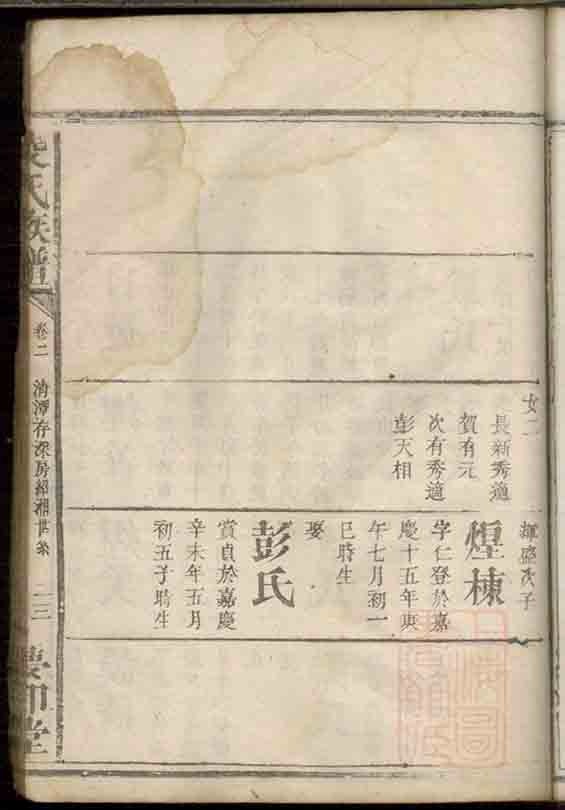 女二
長新秀適
賀有元
次有秀適
彭天相
輝盛次子
煌棟
字仁登於嘉
慶十五年庚
午七月初一
巳時生
娶
彭氏
賞貞於嘉慶
辛未年五月
初五子時生
氏族譜
卷二
清潭存深房紹湘世系
二三
堂